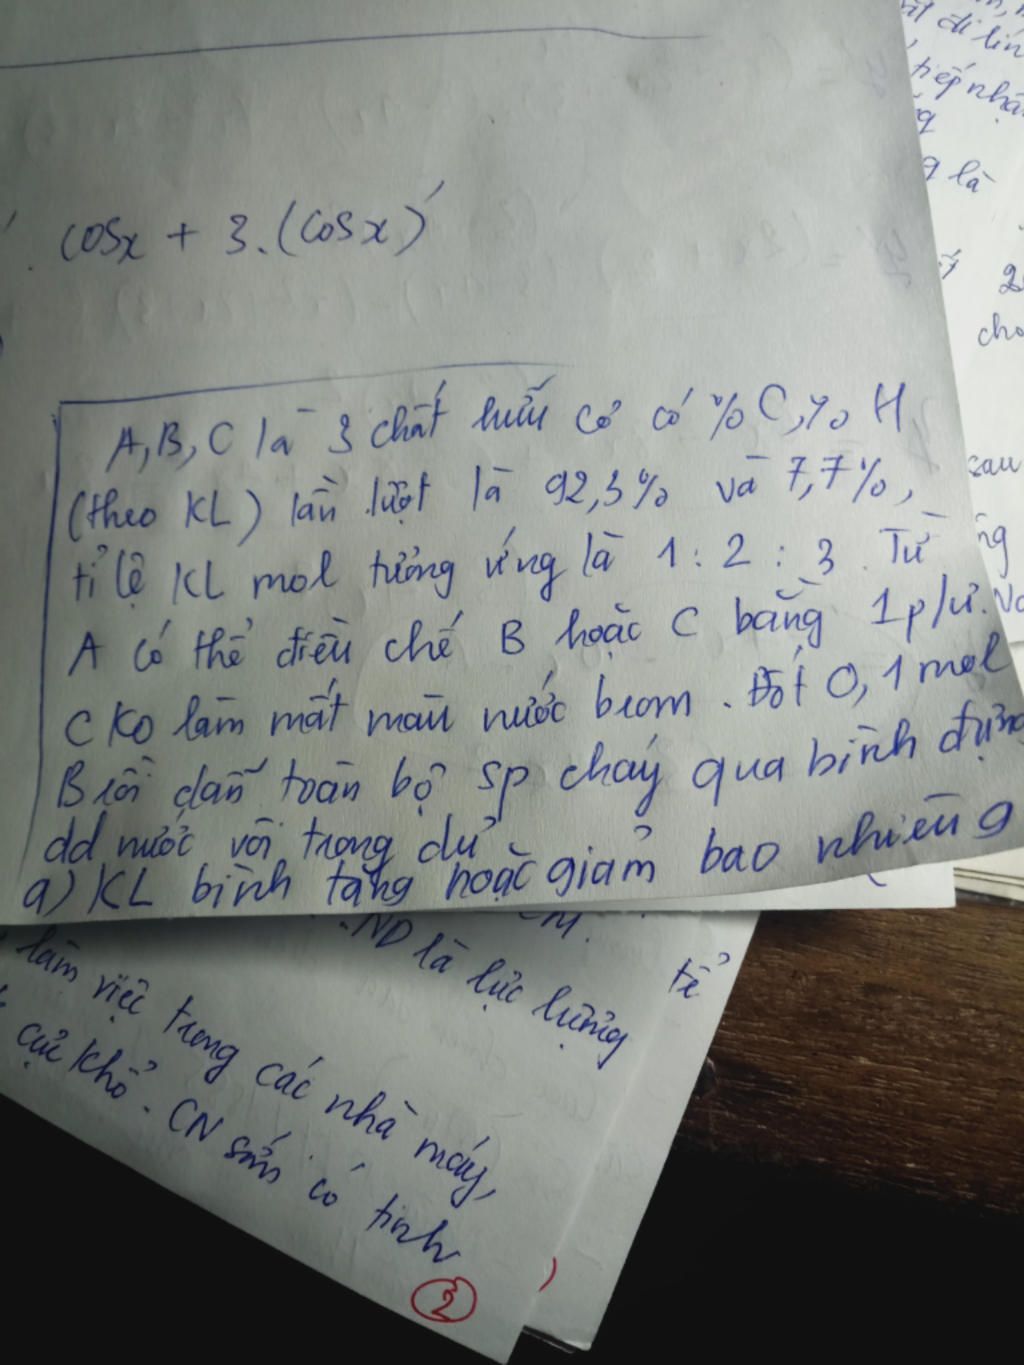 cosx + 3.(cosx)'
A, B, C là 3 chất hữu cơ có % C, % H
(theo KL) lần lượt là 92,3% và 7,7%,
tỉ lệ KL mol tương ứng là 1 : 2 : 3. Từ
A có thể điều chế B hoặc C bằng 1 p/ư. Và
C ko làm mất màu nước brom. Đốt 0,1 mol
B rồi dẫn toàn bộ sp cháy qua bình đựng
dd nước vôi trong dư
a) KL bình tăng hoặc giảm bao nhiêu g
ND là lực lượng
làm việc trong các nhà máy,
cực khổ. CN sớm có tinh
2
tế
tiếp nhận
là
cho
sau